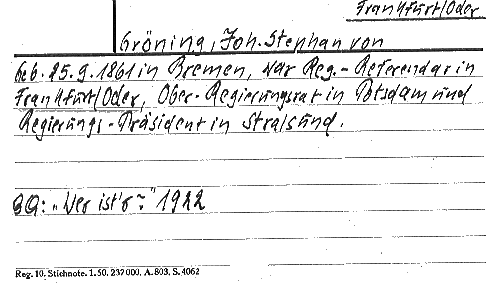 Frankfurt/Oder
Gröning, Joh. Stephan von
Geb. 25.9.1861 in Bremen, war Reg.-Referendar in
Frankfurt/Oder, Ober-Regierungsrat in Potsdam und
Regierungs-Präsident in Stralsund.
BQ: „Wer ist's?" 1922
Reg. 10. Stichnote. 1. 50. 237 000. A. 803. S. 4062